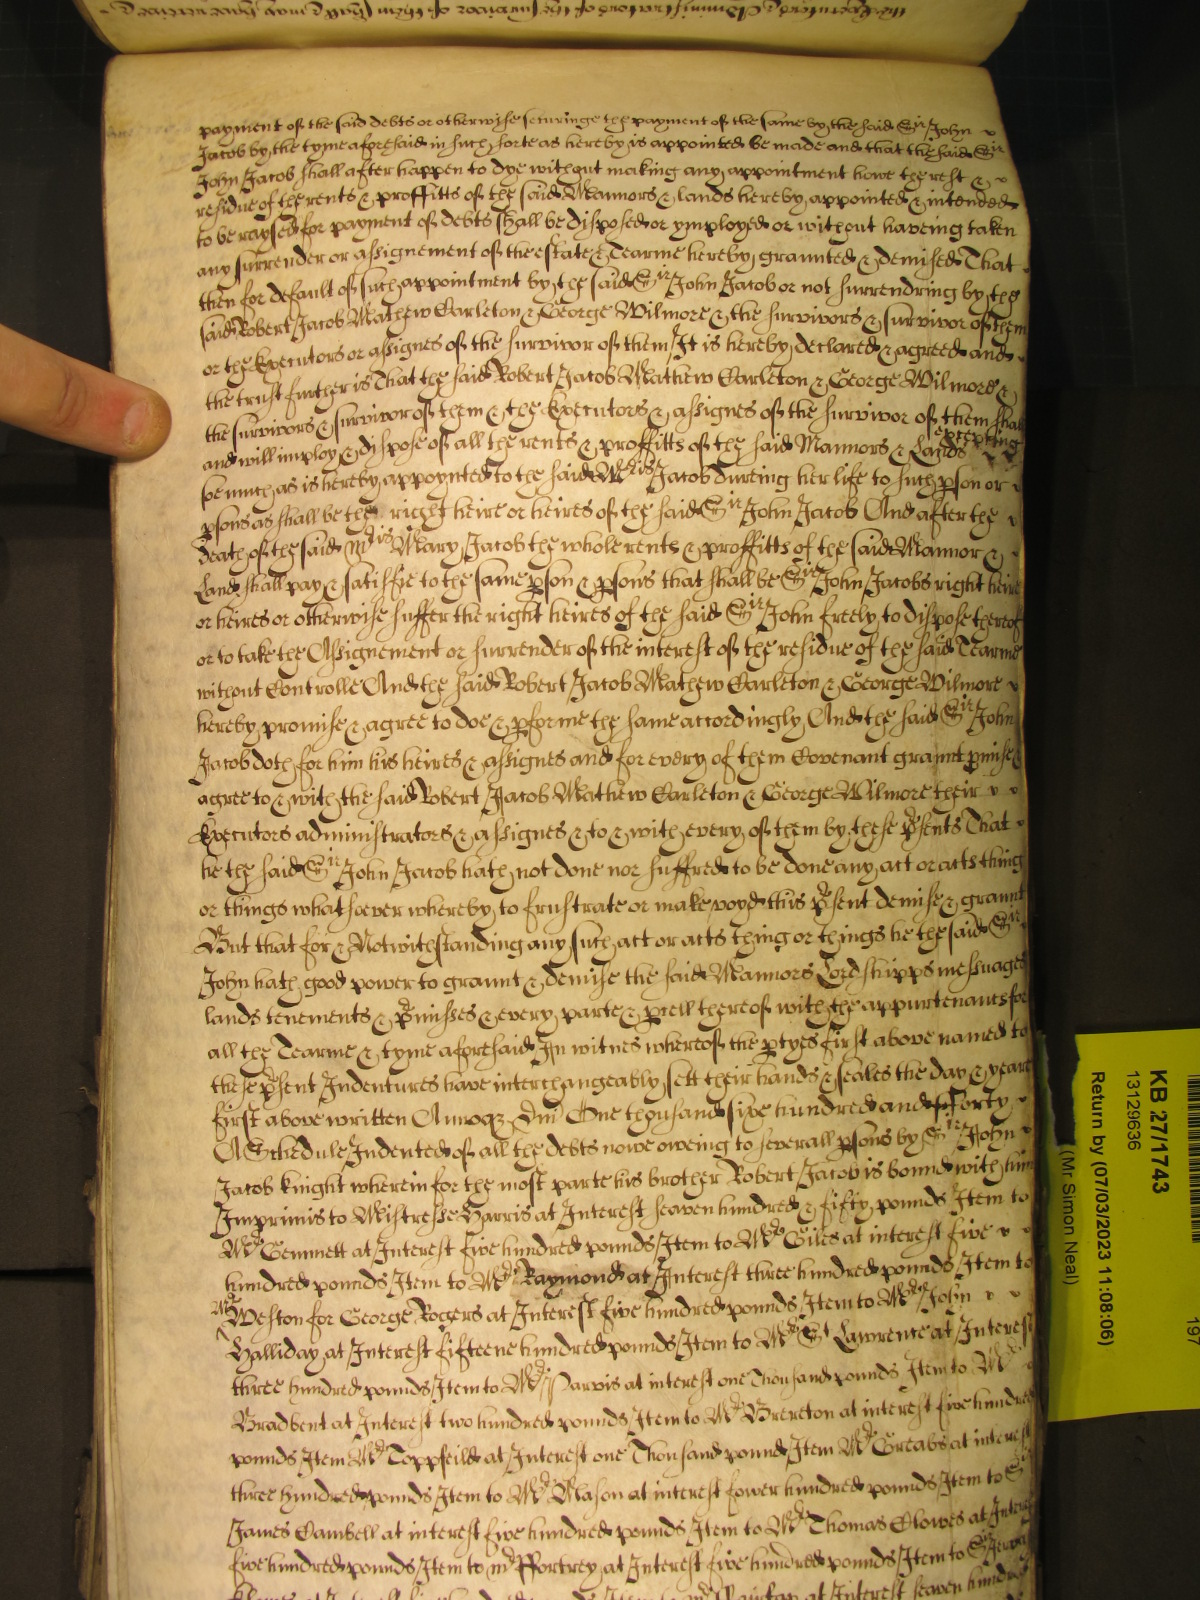 payment of the said debts or otherwise secureinge the payment of the same by the said Sir John
Jacob by the tyme aforesaid in such sorte as hereby is appointed be made and that the said Sir
John Jacob shall after happen to dye without making any appointment howe the rest &
residue of the rents & proffitts of the said Mannors & lands hereby appointed & intended
to be raysed for payment of debts shall be disposed or ymployed or without haveing taken
any surrender or assignement of the estate & Tearme hereby graunted & demised That
then for default of such appointment by the said Sir John Jacob or not surrendring by the
said Robert Jacob Mathew Carleton & George Wilmore & the survivors & survivor of them
or the Executors or assignes of the survivor of them It is hereby declared & agreed and
the trust further is That the said Robert Jacob Mathew Carleton & George Wilmore &
the survivors & survivor of them & the Executors & assignes of the survivor of them shall
and will imploy & dispose of all the rents & proffitts of the said Mannors & Lands excepting
soe much as is hereby appoynted to the said Mris Jacob dureing her life to such pson or
psons as shall be the right heire or heires of the said Sir John Jacob And after the
death of the said Mris Mary Jacob the whole rents & proffitts of the said Mannor &
Land shall pay & satisfie to the same pson & psons that shall be Sir John Jacobs right heire
or heires or otherwise suffer the right heires of the said Sir John freely to dispose thereof
or to take the Assignement or surrender of the interest of the residue of the said Tearme
without Controlle And the said Robert Jacob Mathew Carleton & George Wilmore
hereby promise & agree to doe & pforme the same accordingly And the said Sir John
Jacob doth for him his heires & assignes and for every of them Covenant graunt pmise &
agree to & with the said Robert Jacob Mathew Carleton & George Wilmore their
Executors administrators & assignes & to & with every of them by these psents That
he the said Sir John Jacob hath not done nor suffred to be done any act or acts thing
or things whatsoever whereby to frustrate or make voyd this psent demise & graunt
But that for & Notwithstanding any such act or acts thing or things he the said Sir
John hath good power to graunt & demise the said Mannors Lordshipps messuages
lands tenements & pmisses & every parte & pcell thereof with the appurtenances for
all the Tearme & tyme aforesaid In witnes whereof the ptyes first above named to
these psent Indentures have interchangeably sett their hands & seales the day & yeare
first above written Annoq Dni One thousand sixe hundred and Forty
A Schedule Indented of all the debts nowe oweing to severall psons by Sir John
Jacob knight wherein for the most parte his brother Robert Jacob is bound with him
Imprimis to Mistresse Harris at Interest seaven hundred & fifty pounds Item to
Mr Gennett at Interest five hundred pounds Item to Mr Giles at interest five
hundred pounds Item to Mr Raymond at Interest three hundred pounds Item to
Mr Weston for George Rogers at Interest five hundred pounds Item to Mr John
Halliday at Interest fifteene hundred pounds Item to Mr St Lawrence at Interest
three hundred pounds Item to Mr Parvis at interest one Thousand pounds Item to Mr
Bradbent at Interest two hundred pounds Item to Mr Brereton at interest five hundred
pounds Item Mr Toppfeild at Interest one Thousand pound Item Mr Greabs at interest
three hundred pounds Item to Mr Mason at interest fower hundred pounds Item to Sir
James Cambell at interest five hundred pounds Item to Mr Thomas Clowes at Interest
five hundred pounds Item to mr Portrey at Interest five hundred pounds Item to Sir
at Interest seaven hundred
KB 27/1743
13129636
Return by (07/03/2023 11:08:06)
(Mr Simon Neal)
197